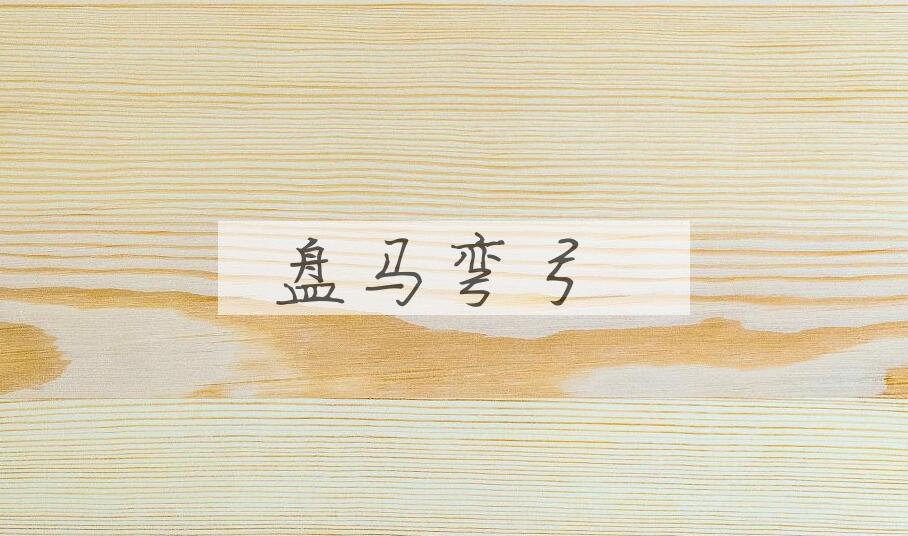 盘马弯弓